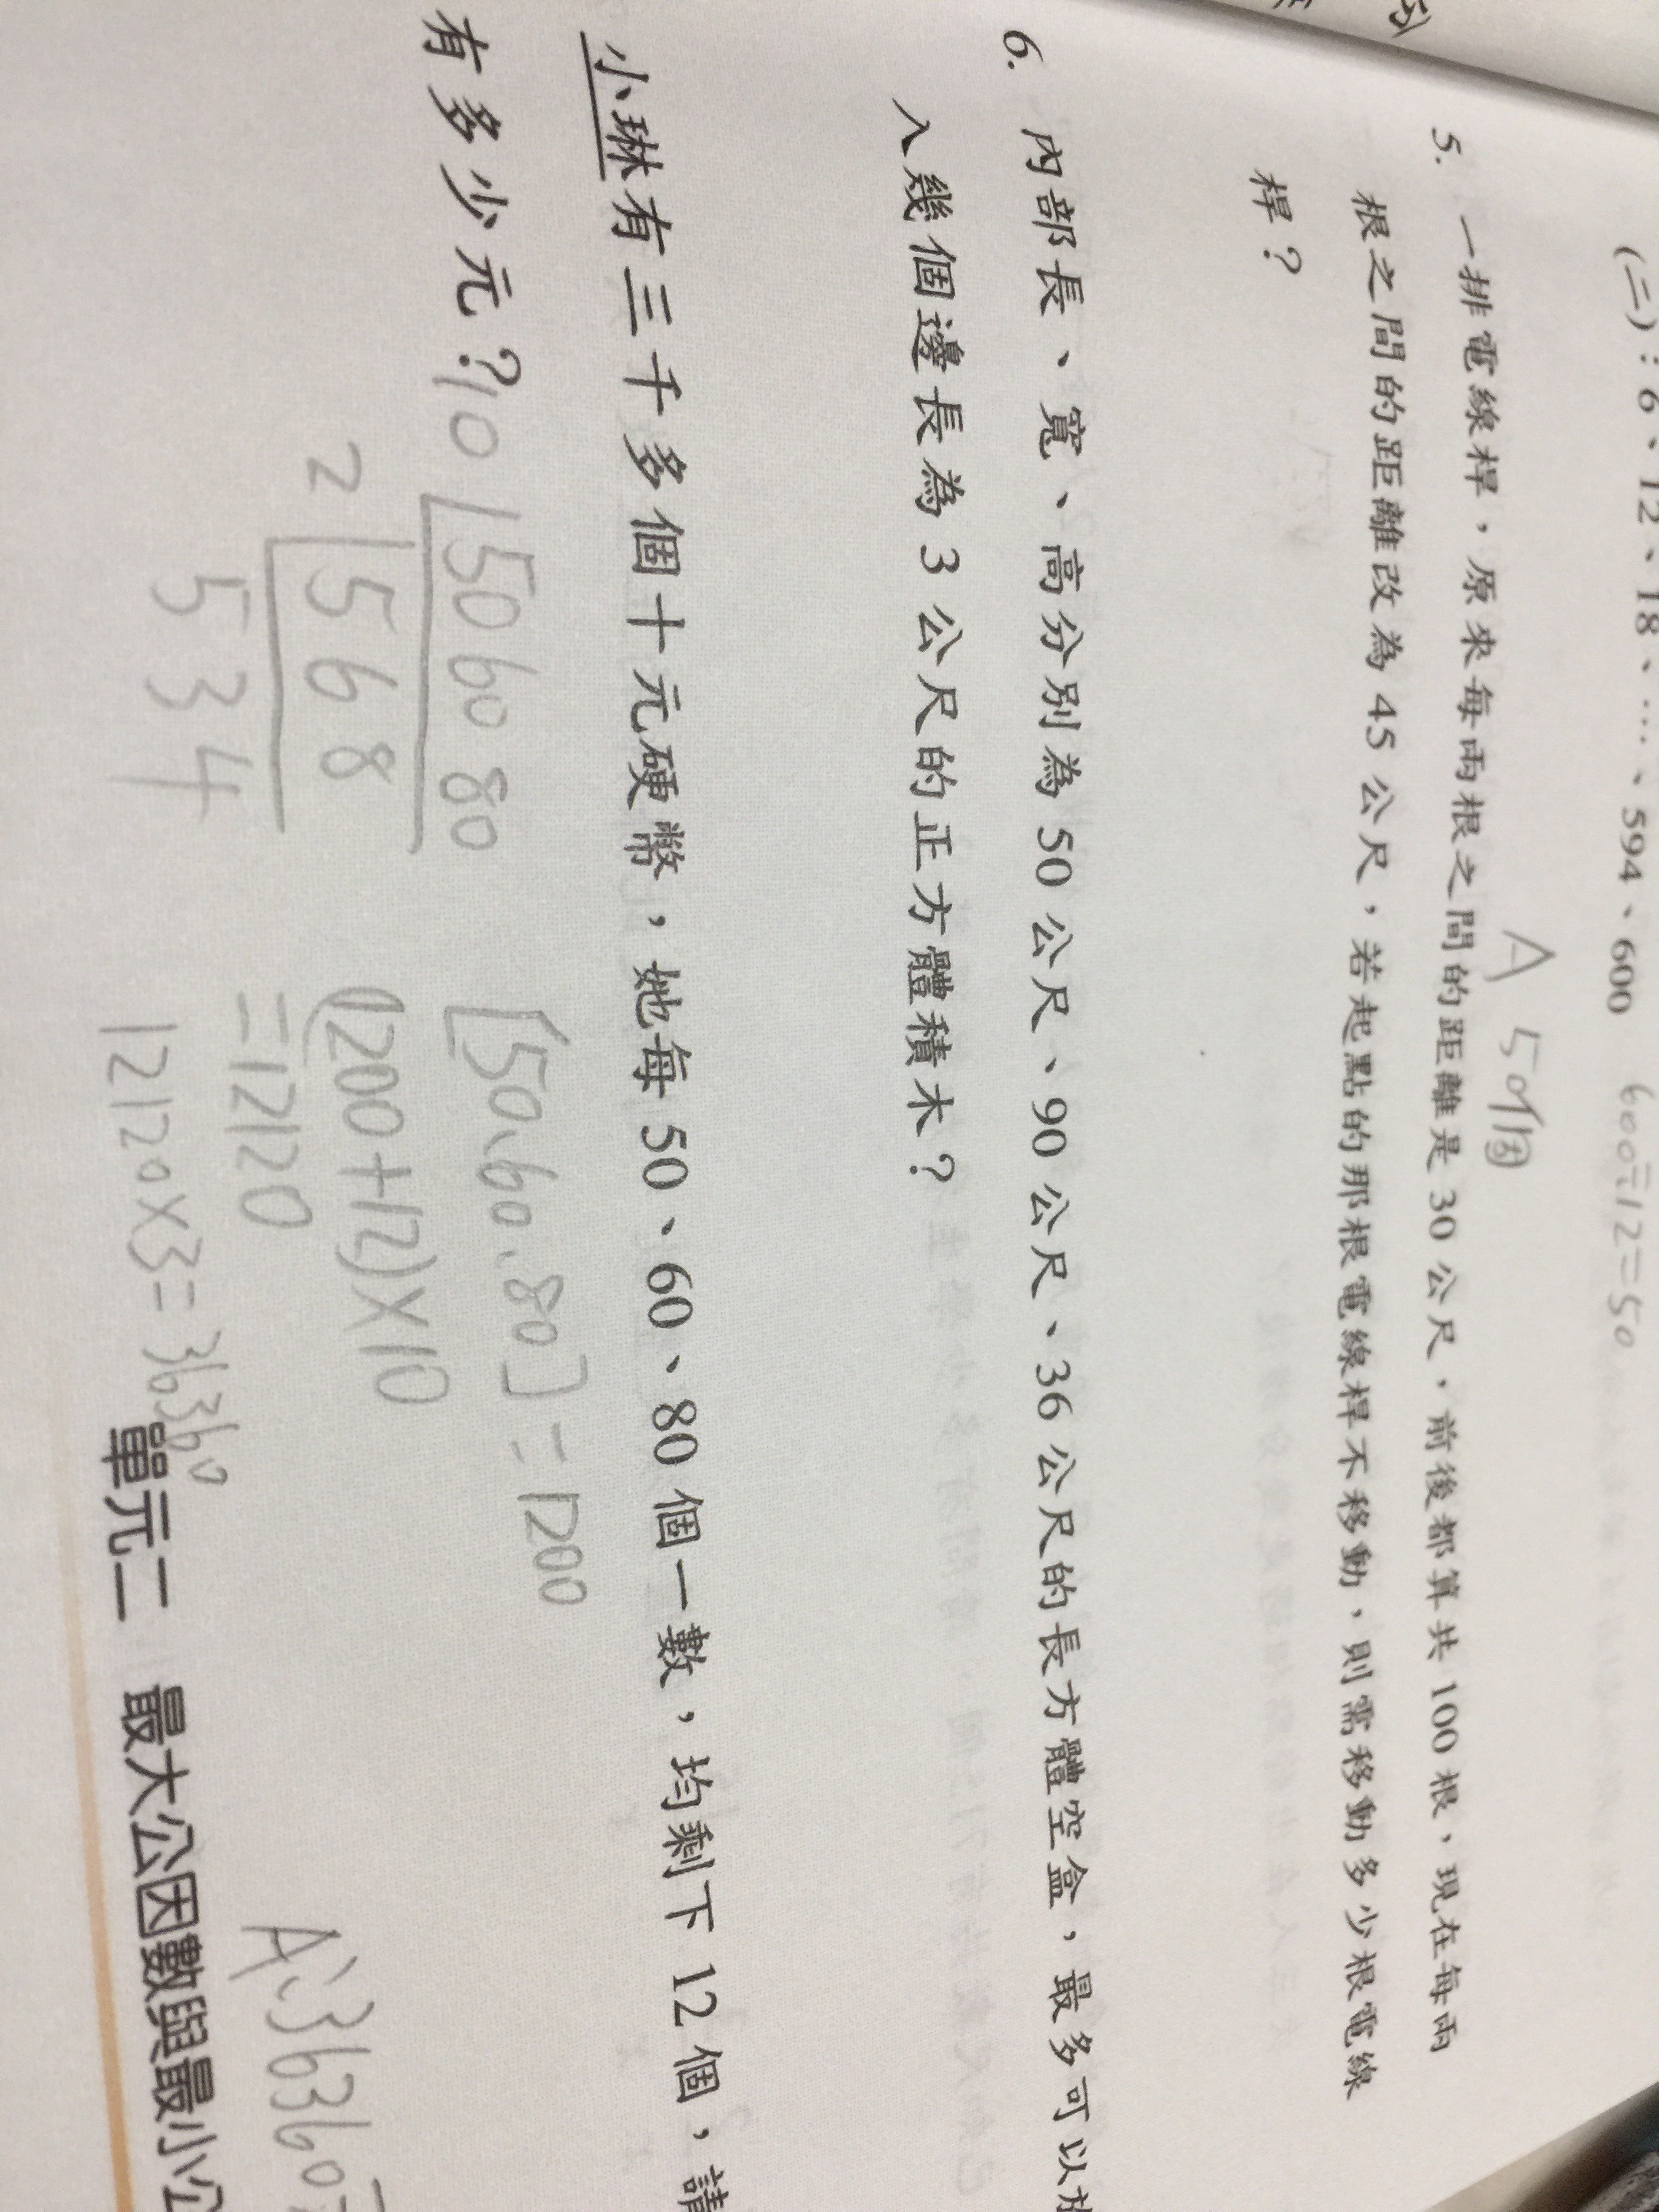 (二)：6、12、18、…、594、600 600÷12=50
A 50個
5. 一排電線桿，原來每兩根之間的距離是 30 公尺，前後都算共 100 根，現在每兩
根之間的距離改為 45 公尺，若起點的那根電線桿不移動，則需移動多少根電線
桿？
6. 內部長、寬、高分別為 50 公尺、90 公尺、36 公尺的長方體空盒，最多可以放
入幾個邊長為 3 公尺的正方體積木？
小琳有三千多個十元硬幣，她每 50、60、80 個一數，均剩下 12 個，請
有多少元？
10 50 60 80
2 5 6 8
5 3 4
[50、60、80]=1200
(1200+12)×10
=12120
12120×3=36360
A:36360元
單元二 最大公因數與最小公